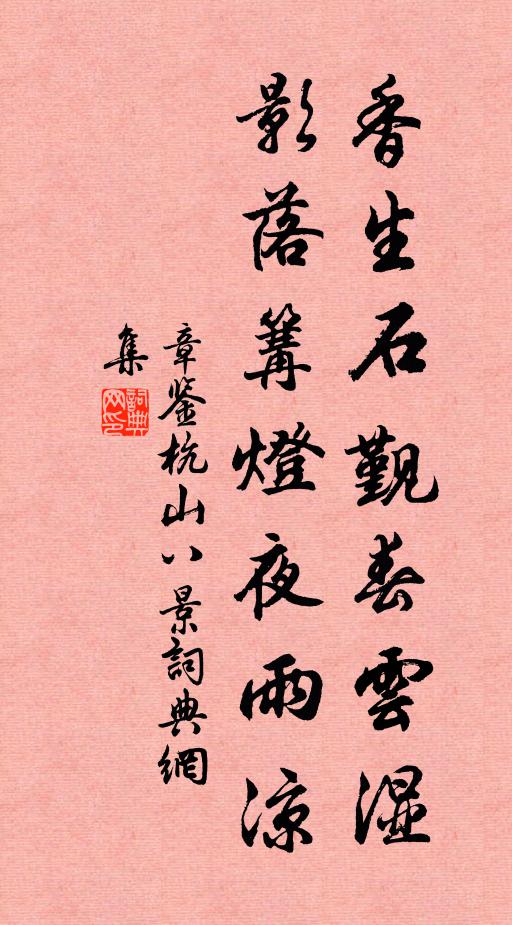 香生石觀春雲湿
影落篝燈夜雨涼
章鉴杭山八景詞典網
集
詞典網印